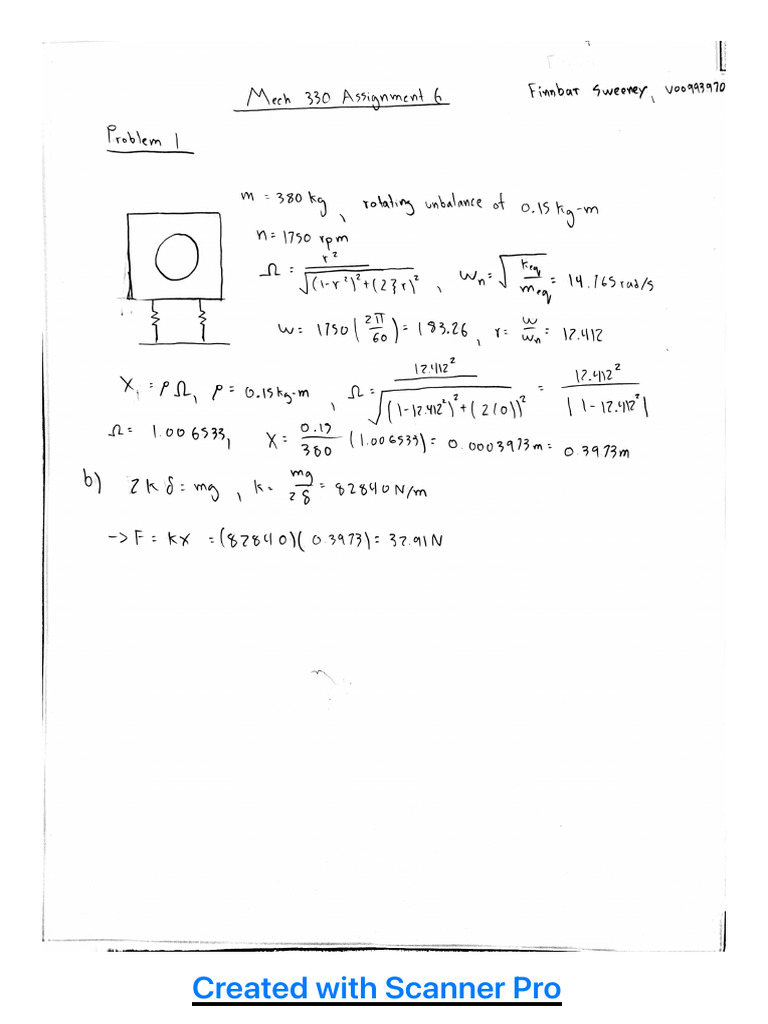 Mech 330 Assignment 6
Finnbar Sweeney, V00993970
Problem 1
m = 380 kg, rotating unbalance of 0.15 kg-m
n = 1750 rpm
Ω = r² / √((1-r²)² + (2ξr)²), ωn = √(keq/meq) = 14.765 rad/s
ω = 1750 (2π/60) = 183.26, r = ω/ωn = 12.412
X, = ρΩ, ρ = 0.15 kg-m, Ω = 12.412² / √((1-12.412²)² + (2(0))²) = 12.412² / |1-12.412²|
Ω = 1.006533, X = 0.15/380 (1.006533) = 0.0003973m = 0.3973m
b) 2kδ = mg, k = mg/2δ = 82840 N/m
-> F = kx = (82840)(0.3973) = 32.91 N
Created with Scanner Pro